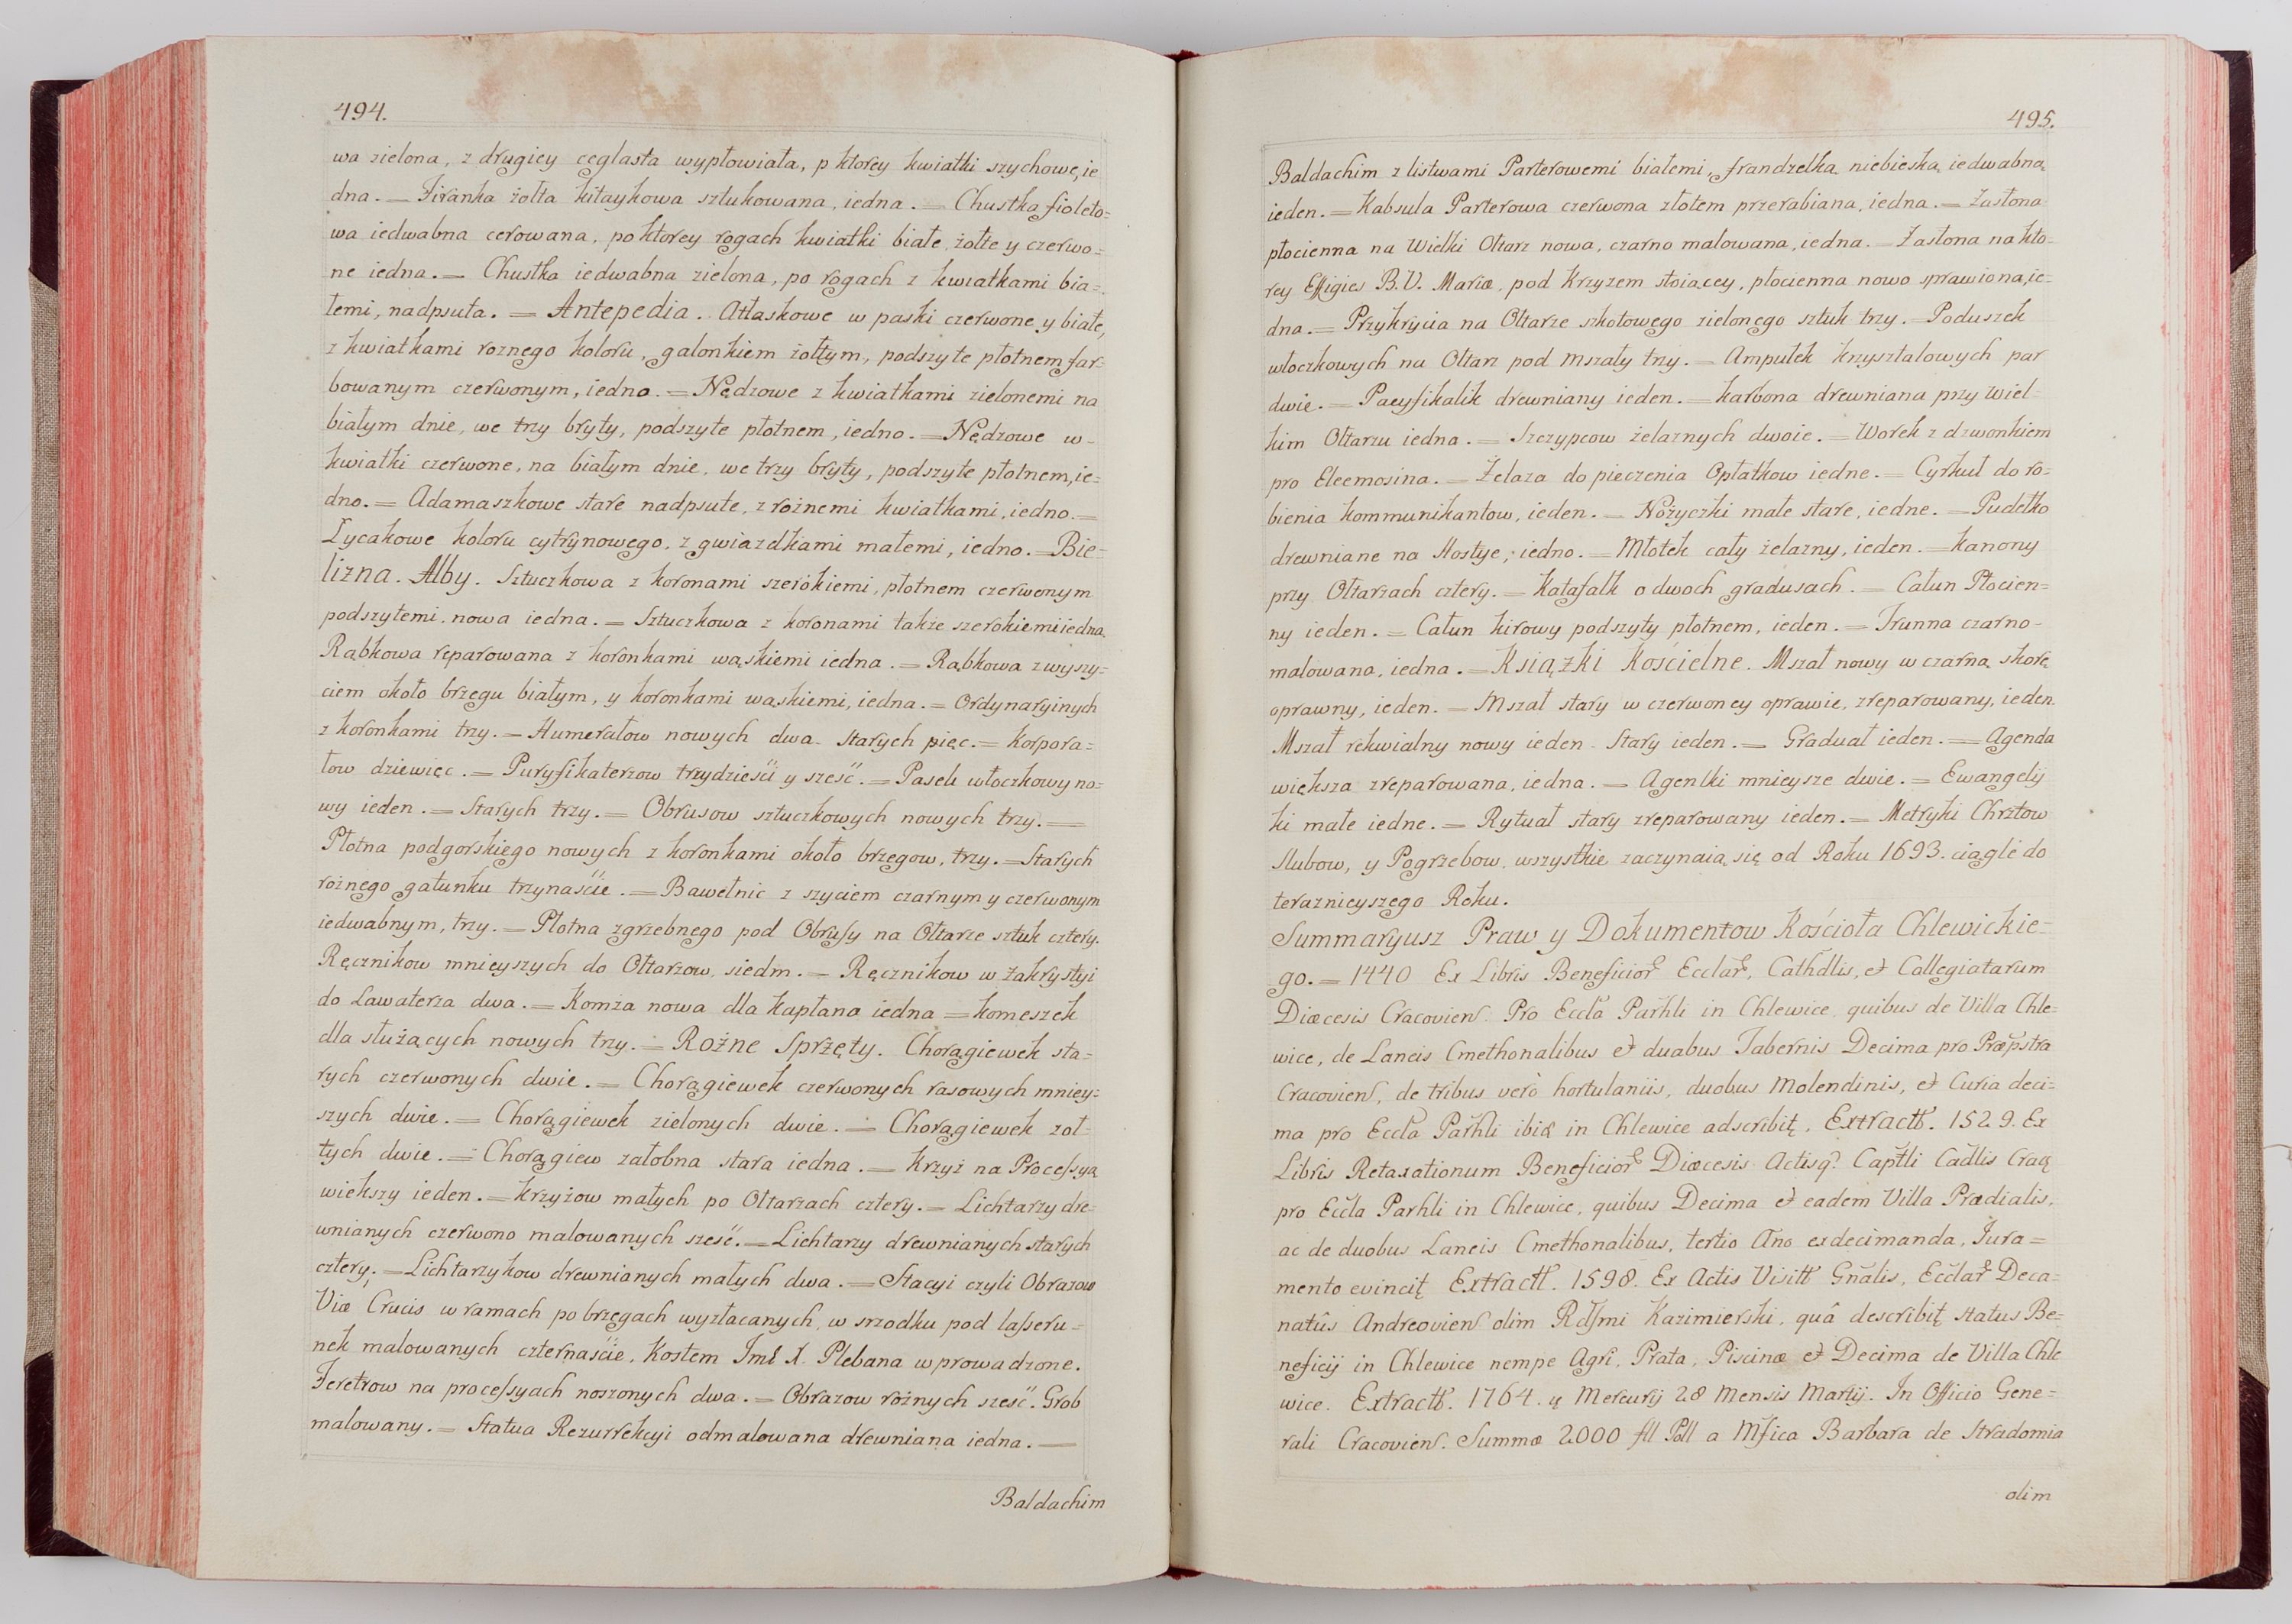 494.
wa zielona, z drugiey ceglasta wypłowiała, p ktorey kwiatki szychowe, ie
dna. = Firanka żołta kitaykowa sztukowana, iedna. = Chustka fioleto=
wa iedwabna cerowana, po ktorey rogach kwiatki białe żołte y czerwo=
ne iedna. = Chustka iedwabna zielona, po rogach z kwiatkami bia=
łemi, nadpsuta. = Antepedia. Atłaskowe w paski czerwone y białe,
z kwiatkami roznego koloru, galonkiem żołtym, podszyte płotnem far=
bowanym czerwonym, iedno. = Nędzowe z kwiatkami zielonemi na
białym dnie, we trzy bryty, podszyte płotnem, iedno. = Nędzowe w
kwiatki czerwone, na białym dnie, we trzy bryty, podszyte płotnem, ie=
dno. = Adamaszkowe stare nadpsute, z rożnemi kwiatkami, iedno. =
Łycakowe koloru cytrynowego, z gwiazdkami małemi, iedno. = Bie=
lizna. Alby. Sztuczkowa z koronami szerokiemi, płotnem czerwonym
podszytemi, nowa iedna. = Sztuczkowa z koronami także szerokiemi iedna.
Rąbkowa reparowana z koronkami wąskiemi iedna. = Rąbkowa z wyszy=
ciem około brzegu białym, y koronkami wąskiemi, iedna. = Ordynaryinych
z koronkami trzy. = Humerałow nowych dwa. Starych pięc. = Korpora=
łow dziewięc. = Puryfikaterzow trzydzieści y sześć. = Pasek włoczkowy no=
wy ieden. = Starych trzy. = Obrusow sztuczkowych nowych trzy. =
Płotna podgorskiego nowych z koronkami około brzegow, trzy. = Starych
rożnego gatunku trzynaście. = Bawełnic z szyciem czarnym y czerwonym
iedwabnym, trzy. = Płotna zgrzebnego pod Obrusy na Ołtarze sztuk cztery.
Ręcznikow mnieyszych do Ołtarzow, siedm. = Ręcznikow w Zakrystyi
do Lawaterza dwa. = Komża nowa dla Kapłana iedna = Komeszek
dla służących nowych trzy. = Rożne Sprzęty. Chorągiewek sta=
rych czerwonych dwie. = Chorągiewek czerwonych rasowych mniey=
szych dwie. = Chorągiewek zielonych dwie. = Chorągiewek żoł=
tych dwie. = Chorągiew żałobna stara iedna. = Krzyż na Processyą
większy ieden. = Krzyżow małych po Ołtarzach cztery. = Lichtarzy dre=
wnianych czerwono malowanych sześć. = Lichtarzy drewnianych starych
cztery. = Lichtarzykow drewnianych małych dwa. = Stacyi czyli Obrazow
Viæ Crucis w ramach po brzegach wyzłacanych, w srzodku pod lasseru=
nek malowanych czternaście, Kosztem Jmć X. Plebana wprowadzone.
Feretrow na processyach noszonych dwa. = Obrazow rożnych sześć. Grob
malowany. = Statua Rezurrekcyi odmalowana drewniana iedna. =
Baldachim
495.
Baldachim z listwami Parterowemi białemi, frandzelką niebieską iedwabną
ieden. = Kabsula Parterowa czerwona złotem przerabiana, iedna. = Zasłona
płocienna na Wielki Ołtarz nowa, czarno malowana, iedna. = Zasłona na kto=
rey Effigies B. V. Mariæ, pod Krzyzem stoiącey, płocienna nowo sprawiona, ie=
dna. = Przykrycia na Ołtarze szkotowego zielonego sztuk trzy. = Poduszek
włoczkowych na Ołtarz pod Mszały trzy. = Ampułek krzysztalowych par
dwie. = Pacyfikalik drewniany ieden. = Karbona drewniana przy Wiel=
kim Ołtarzu iedna. = Szczypcow żelaznych dwoie. = Worek z dzwonkiem
pro Eleemosina. = Żelaza do pieczenia Opłatkow iedne. = Cyrkuł do ro=
bienia kommunikantow, ieden. = Nożyczki małe stare, iedne. = Pudełko
drewniane na Hostye, iedno. = Młotek cały żelazny, ieden. = Kanony
przy Ołtarzach cztery. = Katafalk o dwoch gradusach. = Całun Płocien=
ny ieden. = Całun kirowy podszyty płotnem, ieden. = Trunna czarno
malowana, iedna. = Książki Kościelne. Mszał nowy w czarną skorę
oprawny, ieden. = Mszał stary w czerwoney oprawie, zreparowany, ieden.
Mszał rekwialny nowy ieden Stary ieden. = Graduał ieden. = Agenda
większa zreparowana, iedna. = Agentki mnieysze dwie. = Ewangelij
ki małe iedne. = Rytuał stary zreparowany ieden. = Metryki Chrztow
Slubow, y Pogrzebow, wszystkie zaczynaią się od Roku 1693. ciągle do
teraznieyszego Roku.
Summaryusz Praw y Dokumentow Kościoła Chlewickie=
go. = 1440 Ex Libris Beneficior Ecclar, Cathdlis, et Collegiatarum
Diæcesis Cracovien. Pro Eccla Parhli in Chlewice, quibus de Villa Chle=
wice, de Laneis Cmethonalibus et duabus Tabernis Decima pro Præpstra
Cracovien, de tribus verò hortulaniis, duobus Molendinis, et Curia deci=
ma pro Eccla Parhli ibid in Chlewice adscribit. Extractt. 1529. Ex
Libris Retaxationum Beneficior Diæcesis Actisq Captli Cadlis Crac
pro Eccla Parhli in Chlewice, quibus Decima et eadem Villa Prædialis,
ac de duobus Laneis Cmethonalibus, tertio Ano exdecimanda, Jura=
mento evincit Extractt. 1598. Ex Actis Visitt Gnalis, Ecclar Deca=
natûs Andreovien olim Rdssmi Kazimierski, quâ describit status Be=
neficij in Chlewice nempe Agri, Prata, Piscinæ et Decima de Villa Chle
wice. Extractt. 1764. Mercurij 28 Mensis Martij. In Officio Gene=
rali Cracovien. Summæ 2000 fll Poll a Mfica Barbara de Stradomia
olim